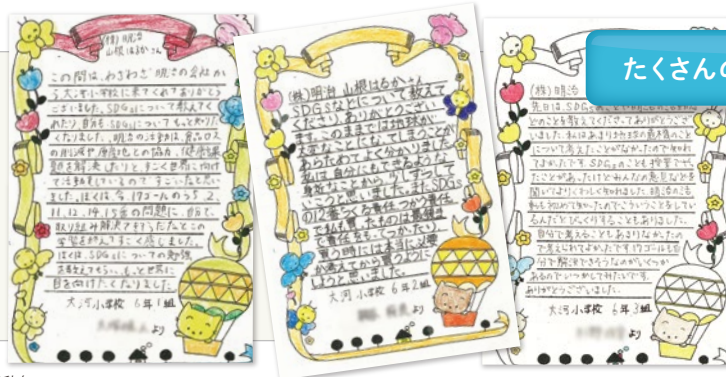 (株)明治
山根はるかさん
この間は、わざわざ明治の会社か
ら大河小学校に来てくれてありがとう
ございました。SDGsについて教えてく
れたり、自分もSDGsについてもっと知りた
くなりました。明治の活動は、食品ロス
の削減や産地との協力、健康課
題を解決したりと、すごく世界に向け
て活動をしているので すごいなと思い
ました。ぼくは、今、17ゴールのうち2、
11、12、14、15番の問題に、明治で、
取り組み解決をすすめたことの
学習を
ぼくは、SDGsについての勉強
を教えてもらい、もっと世界に
目を向けたくなりました。
大河小学校 6年1組
より
(株)明治 山根はるかさん
SDGsなどについて教えて
くださり、ありがとうござい
ます。このままでは地球が
大変なことになってしまうことが
あらためてよく分かりました。
私は自分にもできるような
身近なことから少しずつして
いこうと思いました。また、SDGs
の12番つくる責任つかう責任
で私も、買ったものは最後ま
で責任をもってつかったり、
買う時には本当に必要
か考えてから買うように
しようと思いました。
大河小学校6年2組
より
たくさんの
(株)明治
先日は、SDGs
どのことを教えてくださってありがとうござ
いました。私はあまり地球の最終的のこと
について考えたことがなかったので知れ
てよかったです。SDGsのことも授業でや
たことがあったけどみんなの意見などを
聞いてよりくわしく知れました。明治の活
動も初めて知ったのでこういうことをしてい
るんだとびっくりすることもありました。
自分で考えることもあまりなかったの
で考えれてよかったです。17ゴールも自
分で解決できそうなものがいくつか
あるのでいつかしてみたいです。
ありがとうございました。
大河小学校 6年3組
より